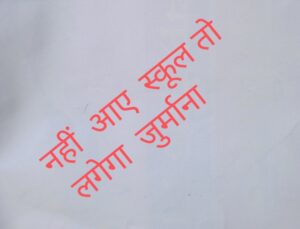 नहीं आए स्कूल तो
लगेगा जुर्माना